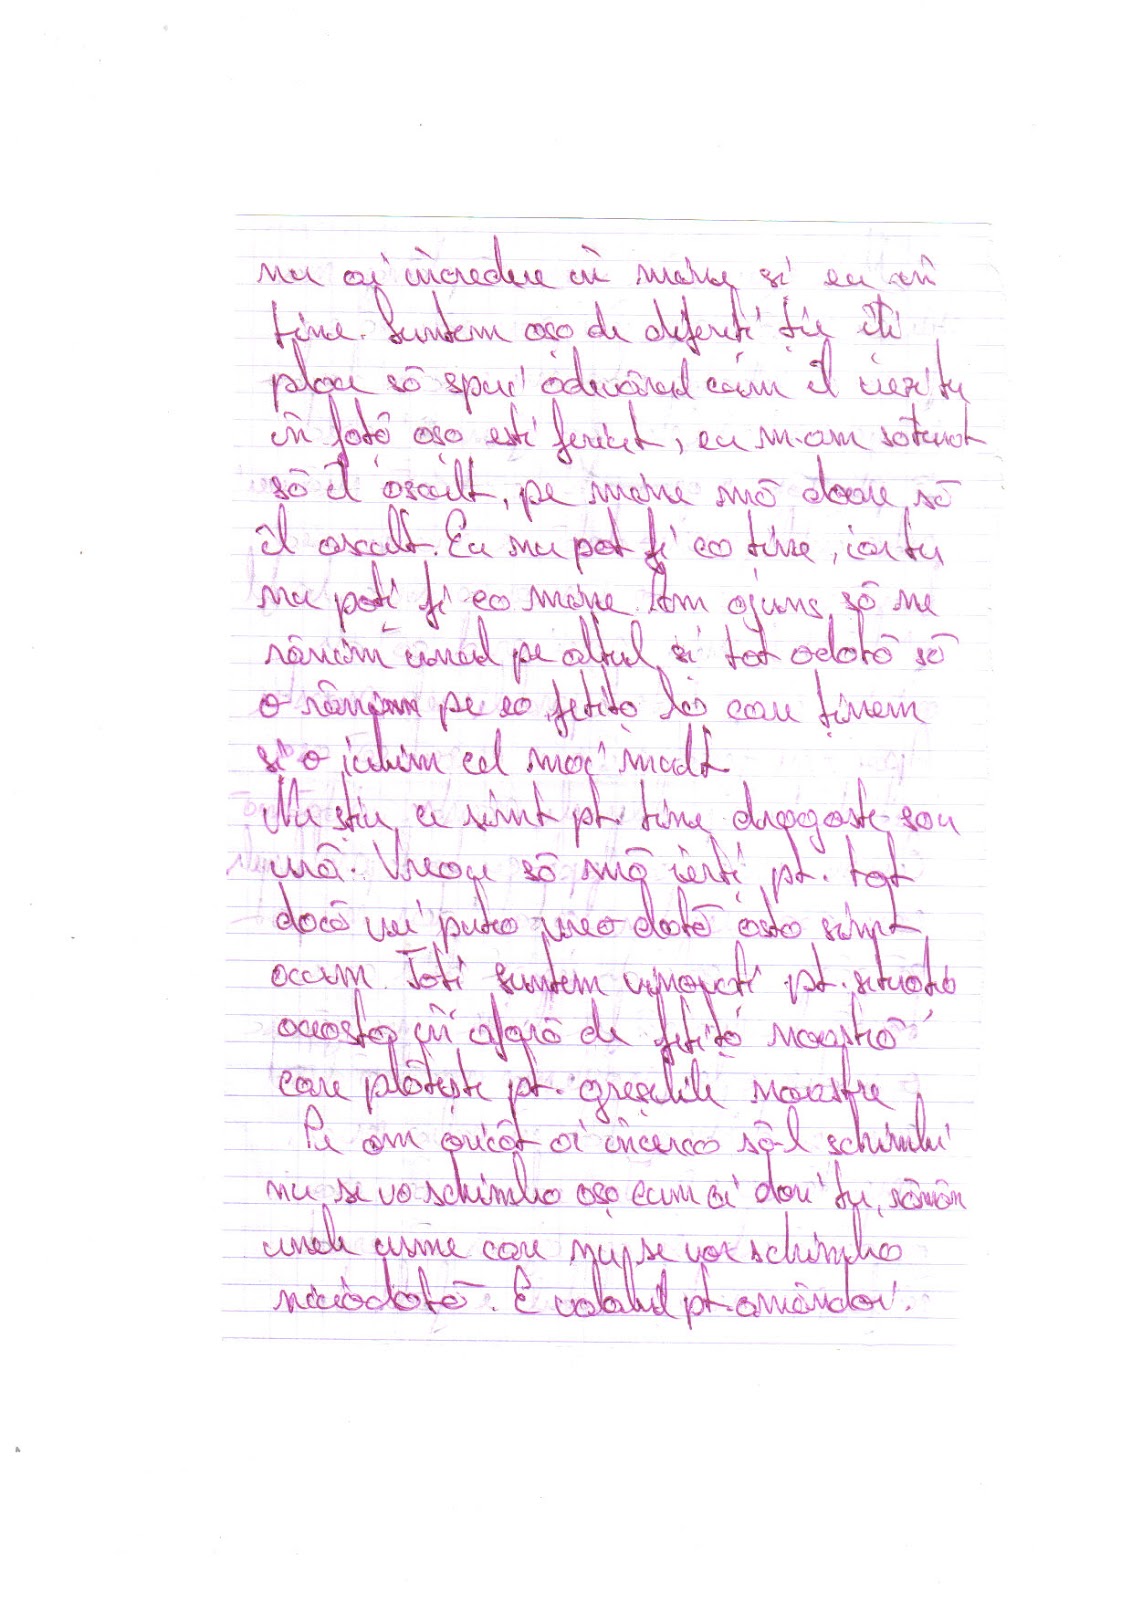 nu ai încredere în mine și eu în
tine. Suntem așa de diferiți ție îți
place să spui adevărul cum îl vezi tu
în față așa ești fericit, eu m-am săturat
să îl ascult, pe mine mă doare să
îl ascult. Eu nu pot fi ca tine, iar tu
nu poți fi ca mine. Am ajuns să ne
rănim unul pe altul și tot odată să
o rănim pe ea fetița la care ținem
și o iubim cel mai mult
Nu știu ce simt pt. tine dragoste sau
ură. Vreau să mă ierți pt. tot
dacă vei putea vreo dată asta simt
acum. Toți suntem vinovați pt. situația
aceasta în afară de fetița noastră
care plătește pt. greșelile noastre
Pe om oricât ai încerca să-l schimbi
nu se va schimba așa cum ai dori tu, rămân
unele urme care nu se vor schimba
niciodată. E valabil pt. amândoi.